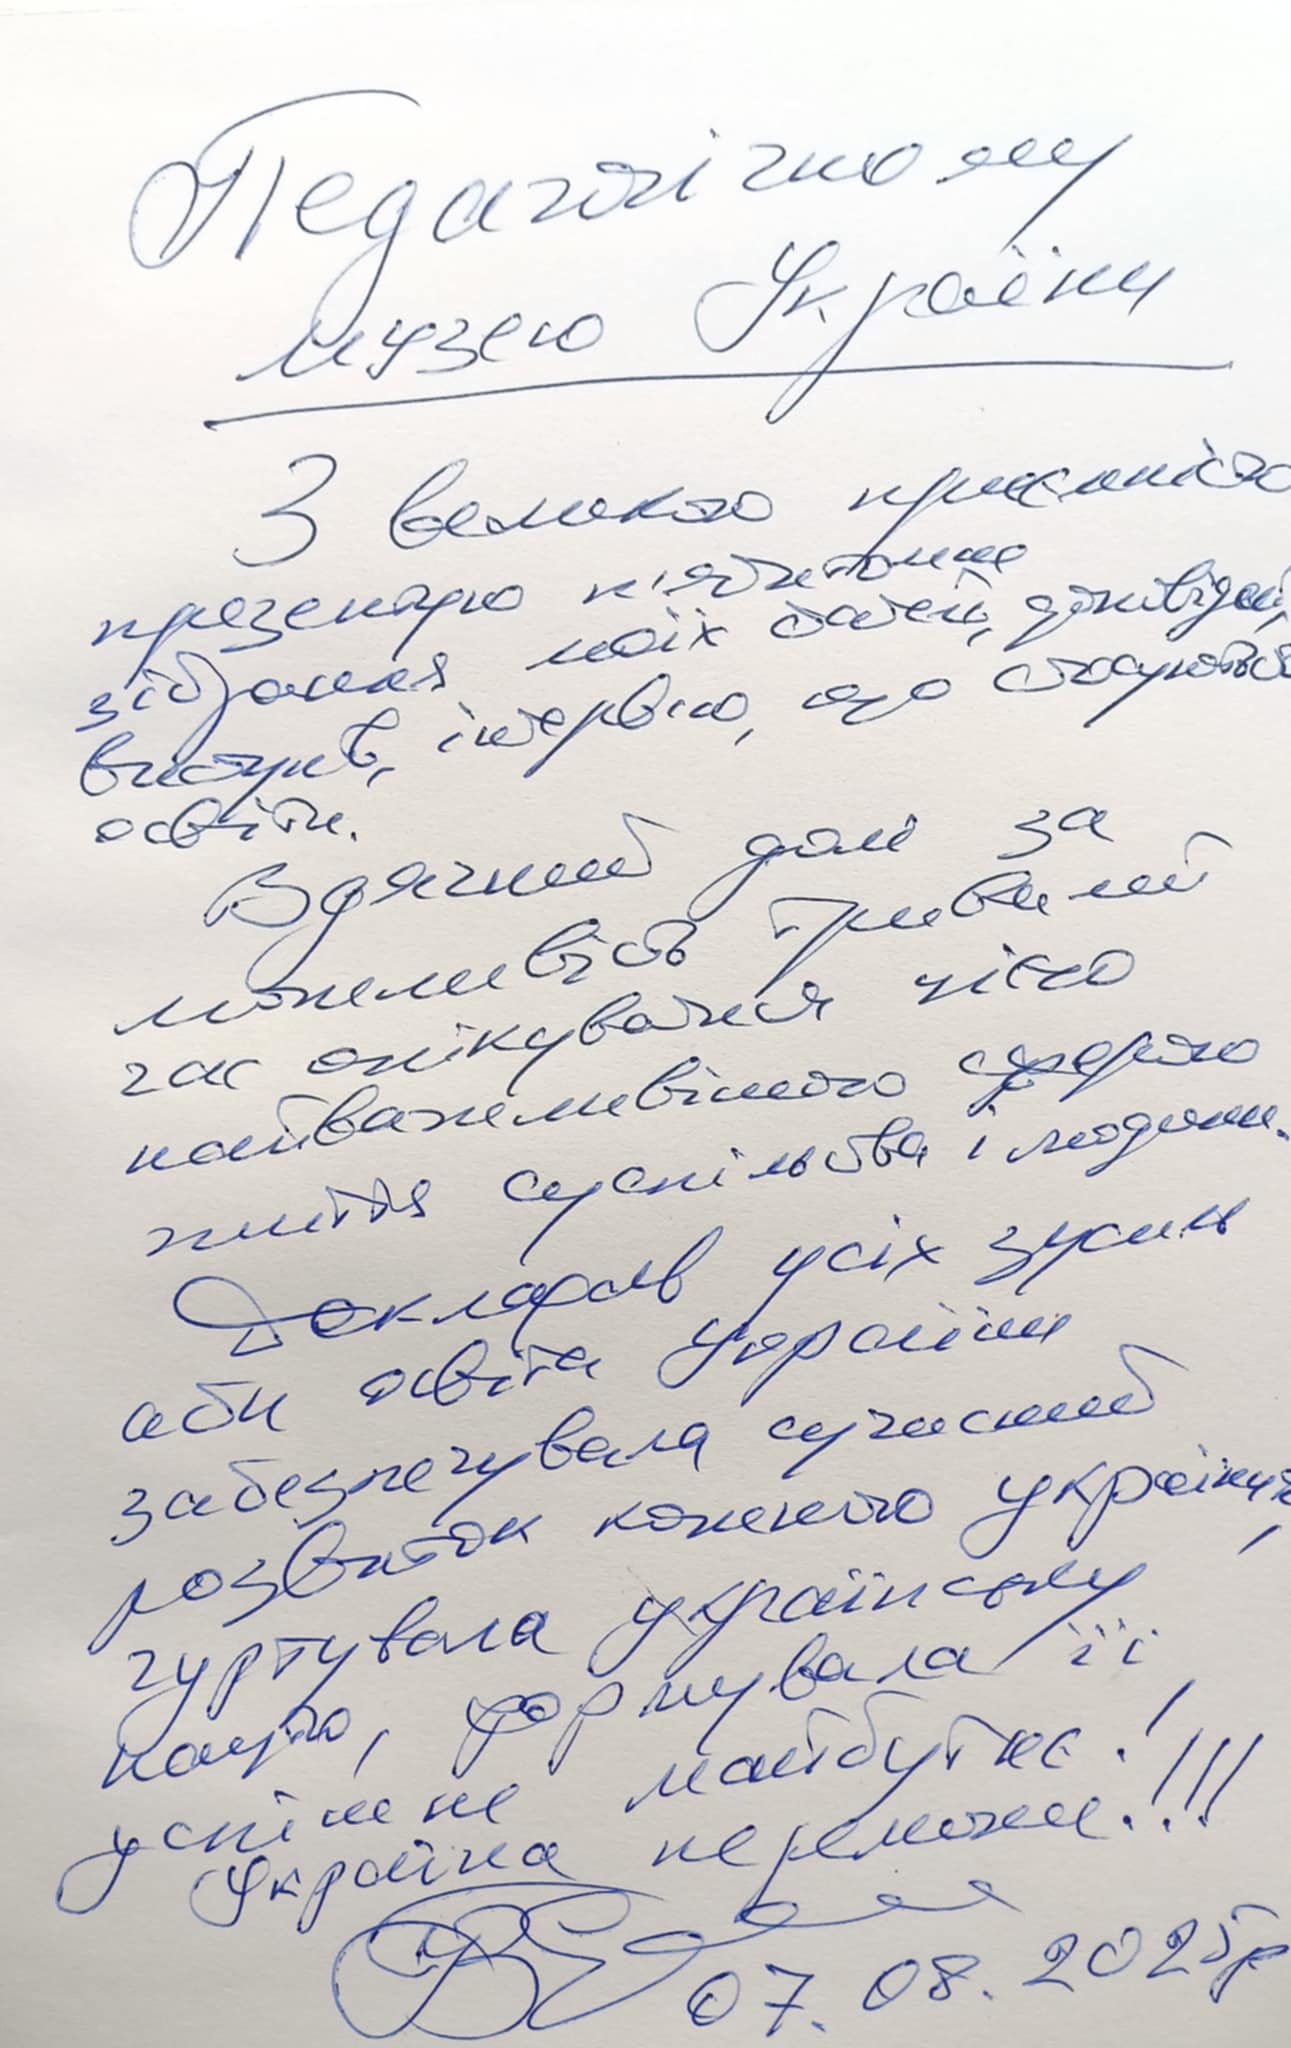 Педагогічному
музею України
З великою приємністю
презентую п'ятитомне
зібрання моїх статей, доповідей,
виступів, інтервю, що стосуються
освіти.
Вдячний долі за
можливість тривалий
час опікуватися цією
найважливішою сферою
життя суспільства і людини.
Докладав усіх зусиль
аби освіта України
забезпечувала сучасний
розвиток кожного українця,
гуртувала українську
націю, формувала її
успішне майбутнє!
Україна переможе!!!
07.08.2025р